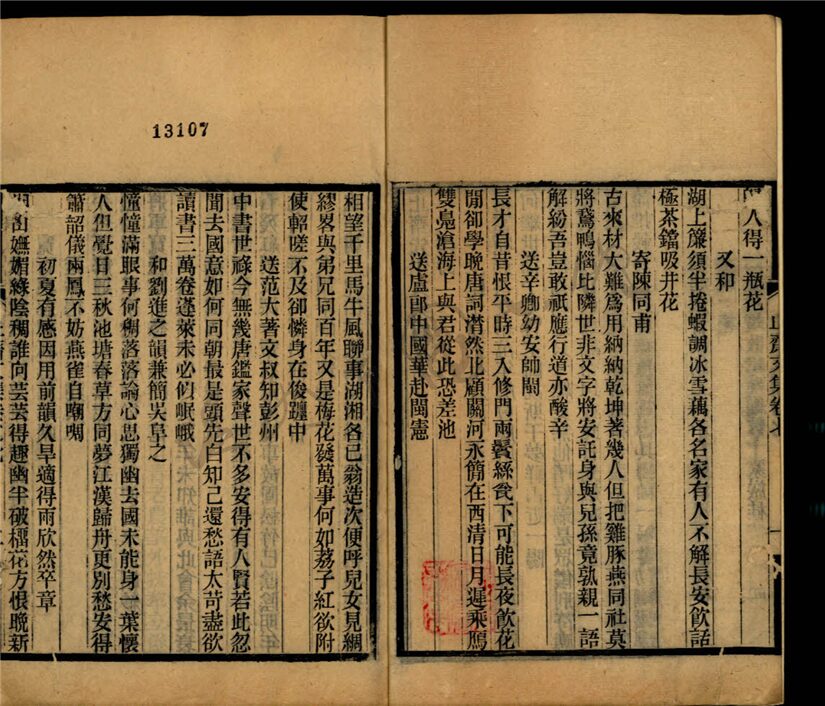 人得一瓶花
又和
湖上簾須半捲蝦調冰雪藕各名家有人不解長安飲話
極茶鐺吸井花
寄陳同甫
古來材大難爲用納納乾坤著幾人但把雞豚燕同社莫
將鵞鴨惱比隣世非文字將安託身與兒孫竟孰親一語
解紛吾豈敢祇應行道亦酸辛
送辛卿幼安帥閩
長才自昔恨平時三入修門兩鬢絲瓮下可能長夜飲花
閒卻學晚唐詞潸然北顧關河永簡在西清日月遲乘鴈
雙鳧滄海上與君從此恐差池
送盧郎中國華赴閩憲
止齋文集卷七
13107
相望千里馬牛風聯事湖湘各已翁造次便呼兒女見綢
繆畧與弟兄同百年又是梅花發萬事何如荔子紅欲附
使軺嗟不及卻憐身在俊躔中
送范大著文叔知彭州
中書世祿今無幾唐鑑家聲世不多安得有人賢若此忽
聞去國意如何同朝最是頭先白知己還愁語太苛盡欲
讀書三萬卷蓬萊未必似岷峨
和劉進之韻兼簡吴皐之
憧憧滿眼事何稠落落論心思獨幽去國未能身一葉懷
人但覺日三秋池塘春草方同夢江漢歸舟更別愁安得
簫韶儀兩鳳不妨燕雀自啁啁
初夏有感因用前韻久旱適得雨欣然卒章
山嫵媚綠陰稠誰向芸芸得趣幽半破橊花方恨晚新